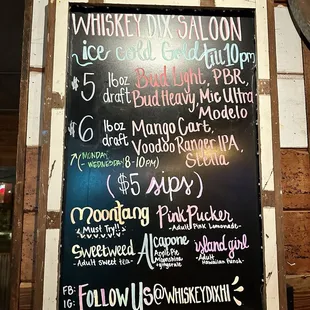 WHISKEY DIX SALOON
ice cold Gold till 10pm
$5 16oz draft Bud Light, PBR,
Bud Heavy, Mic Ultra
Modelo
$6 16oz draft Mango Cart,
Voodoo Ranger IPA,
Stella
(MONDAY - WEDNESDAY 8-10PM)
($5 sips)
Moontang
Must Try!!
Pink Pucker
-Adult Pink Lemonade-
Sweetweed
-Adult sweet tea-
Al capone
Apple Pie
Moonshine
+ gingerale
island girl
-Adult
Hawaiian Punch-
FB:
IG:
FOLLOW US @WHISKEYDIXHI